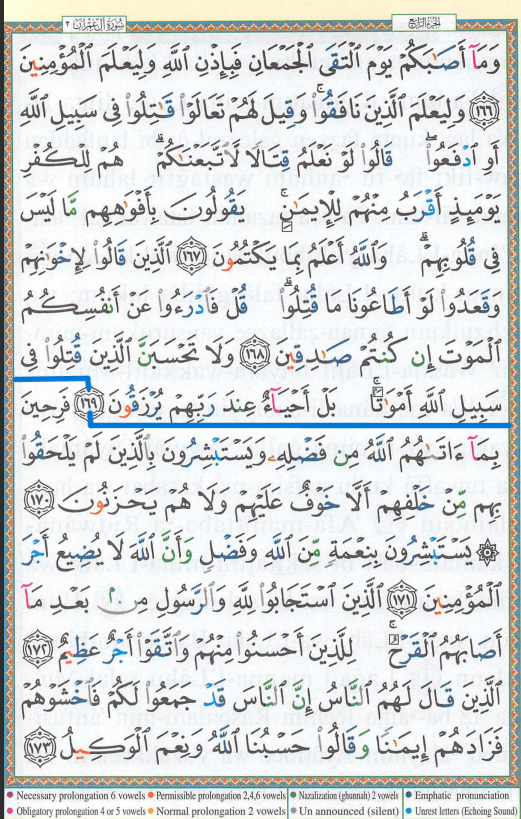 الجزء الرابع
سورة آل عمران ٣
وَمَآ أَصَٰبَكُمْ يَوْمَ ٱلْتَقَى ٱلْجَمْعَانِ فَبِإِذْنِ ٱللَّهِ وَلِيَعْلَمَ ٱلْمُؤْمِنِينَ
﴿١٦٦﴾ وَلِيَعْلَمَ ٱلَّذِينَ نَافَقُوا۟ ۚ وَقِيلَ لَهُمْ تَعَالَوْا۟ قَٰتِلُوا۟ فِى سَبِيلِ ٱللَّهِ
أَوِ ٱدْفَعُوا۟ ۖ قَالُوا۟ لَوْ نَعْلَمُ قِتَالًا لَّٱتَّبَعْنَٰكُمْ ۗ هُمْ لِلْكُفْرِ
يَوْمَئِذٍ أَقْرَبُ مِنْهُمْ لِلْإِيمَٰنِ ۚ يَقُولُونَ بِأَفْوَٰهِهِم مَّا لَيْسَ
فِى قُلُوبِهِمْ ۗ وَٱللَّهُ أَعْلَمُ بِمَا يَكْتُمُونَ ﴿١٦٧﴾ ٱلَّذِينَ قَالُوا۟ لِإِخْوَٰنِهِمْ
وَقَعَدُوا۟ لَوْ أَطَاعُونَا مَا قُتِلُوا۟ ۗ قُلْ فَٱدْرَءُوا۟ عَنْ أَنفُسِكُمُ
ٱلْمَوْتَ إِن كُنتُمْ صَٰدِقِينَ ﴿١٦٨﴾ وَلَا تَحْسَبَنَّ ٱلَّذِينَ قُتِلُوا۟ فِى
سَبِيلِ ٱللَّهِ أَمْوَٰتًۢا ۚ بَلْ أَحْيَآءٌ عِندَ رَبِّهِمْ يُرْزَقُونَ ﴿١٦٩﴾ فَرِحِينَ
بِمَآ ءَاتَىٰهُمُ ٱللَّهُ مِن فَضْلِهِۦ وَيَسْتَبْشِرُونَ بِٱلَّذِينَ لَمْ يَلْحَقُوا۟
بِهِم مِّنْ خَلْفِهِمْ أَلَّا خَوْفٌ عَلَيْهِمْ وَلَا هُمْ يَحْزَنُونَ ﴿١٧٠﴾
۞ يَسْتَبْشِرُونَ بِنِعْمَةٍ مِّنَ ٱللَّهِ وَفَضْلٍ وَأَنَّ ٱللَّهَ لَا يُضِيعُ أَجْرَ
ٱلْمُؤْمِنِينَ ﴿١٧١﴾ ٱلَّذِينَ ٱسْتَجَابُوا۟ لِلَّهِ وَٱلرَّسُولِ مِنۢ بَعْدِ مَآ
أَصَابَهُمُ ٱلْقَرْحُ ۚ لِلَّذِينَ أَحْسَنُوا۟ مِنْهُمْ وَٱتَّقَوْا۟ أَجْرٌ عَظِيمٌ ﴿١٧٢﴾
ٱلَّذِينَ قَالَ لَهُمُ ٱلنَّاسُ إِنَّ ٱلنَّاسَ قَدْ جَمَعُوا۟ لَكُمْ فَٱخْشَوْهُمْ
فَزَادَهُمْ إِيمَٰنًا وَقَالُوا۟ حَسْبُنَا ٱللَّهُ وَنِعْمَ ٱلْوَكِيلُ ﴿١٧٣﴾
Necessary prolongation 6 vowels Permissible prolongation 2,4,6 vowels Nazalization (ghunnah) 2 vowels Emphatic pronunciation
Obligatory prolongation 4 or 5 vowels Normal prolongation 2 vowels Un announced (silent) Unrest letters (Echoing Sound)